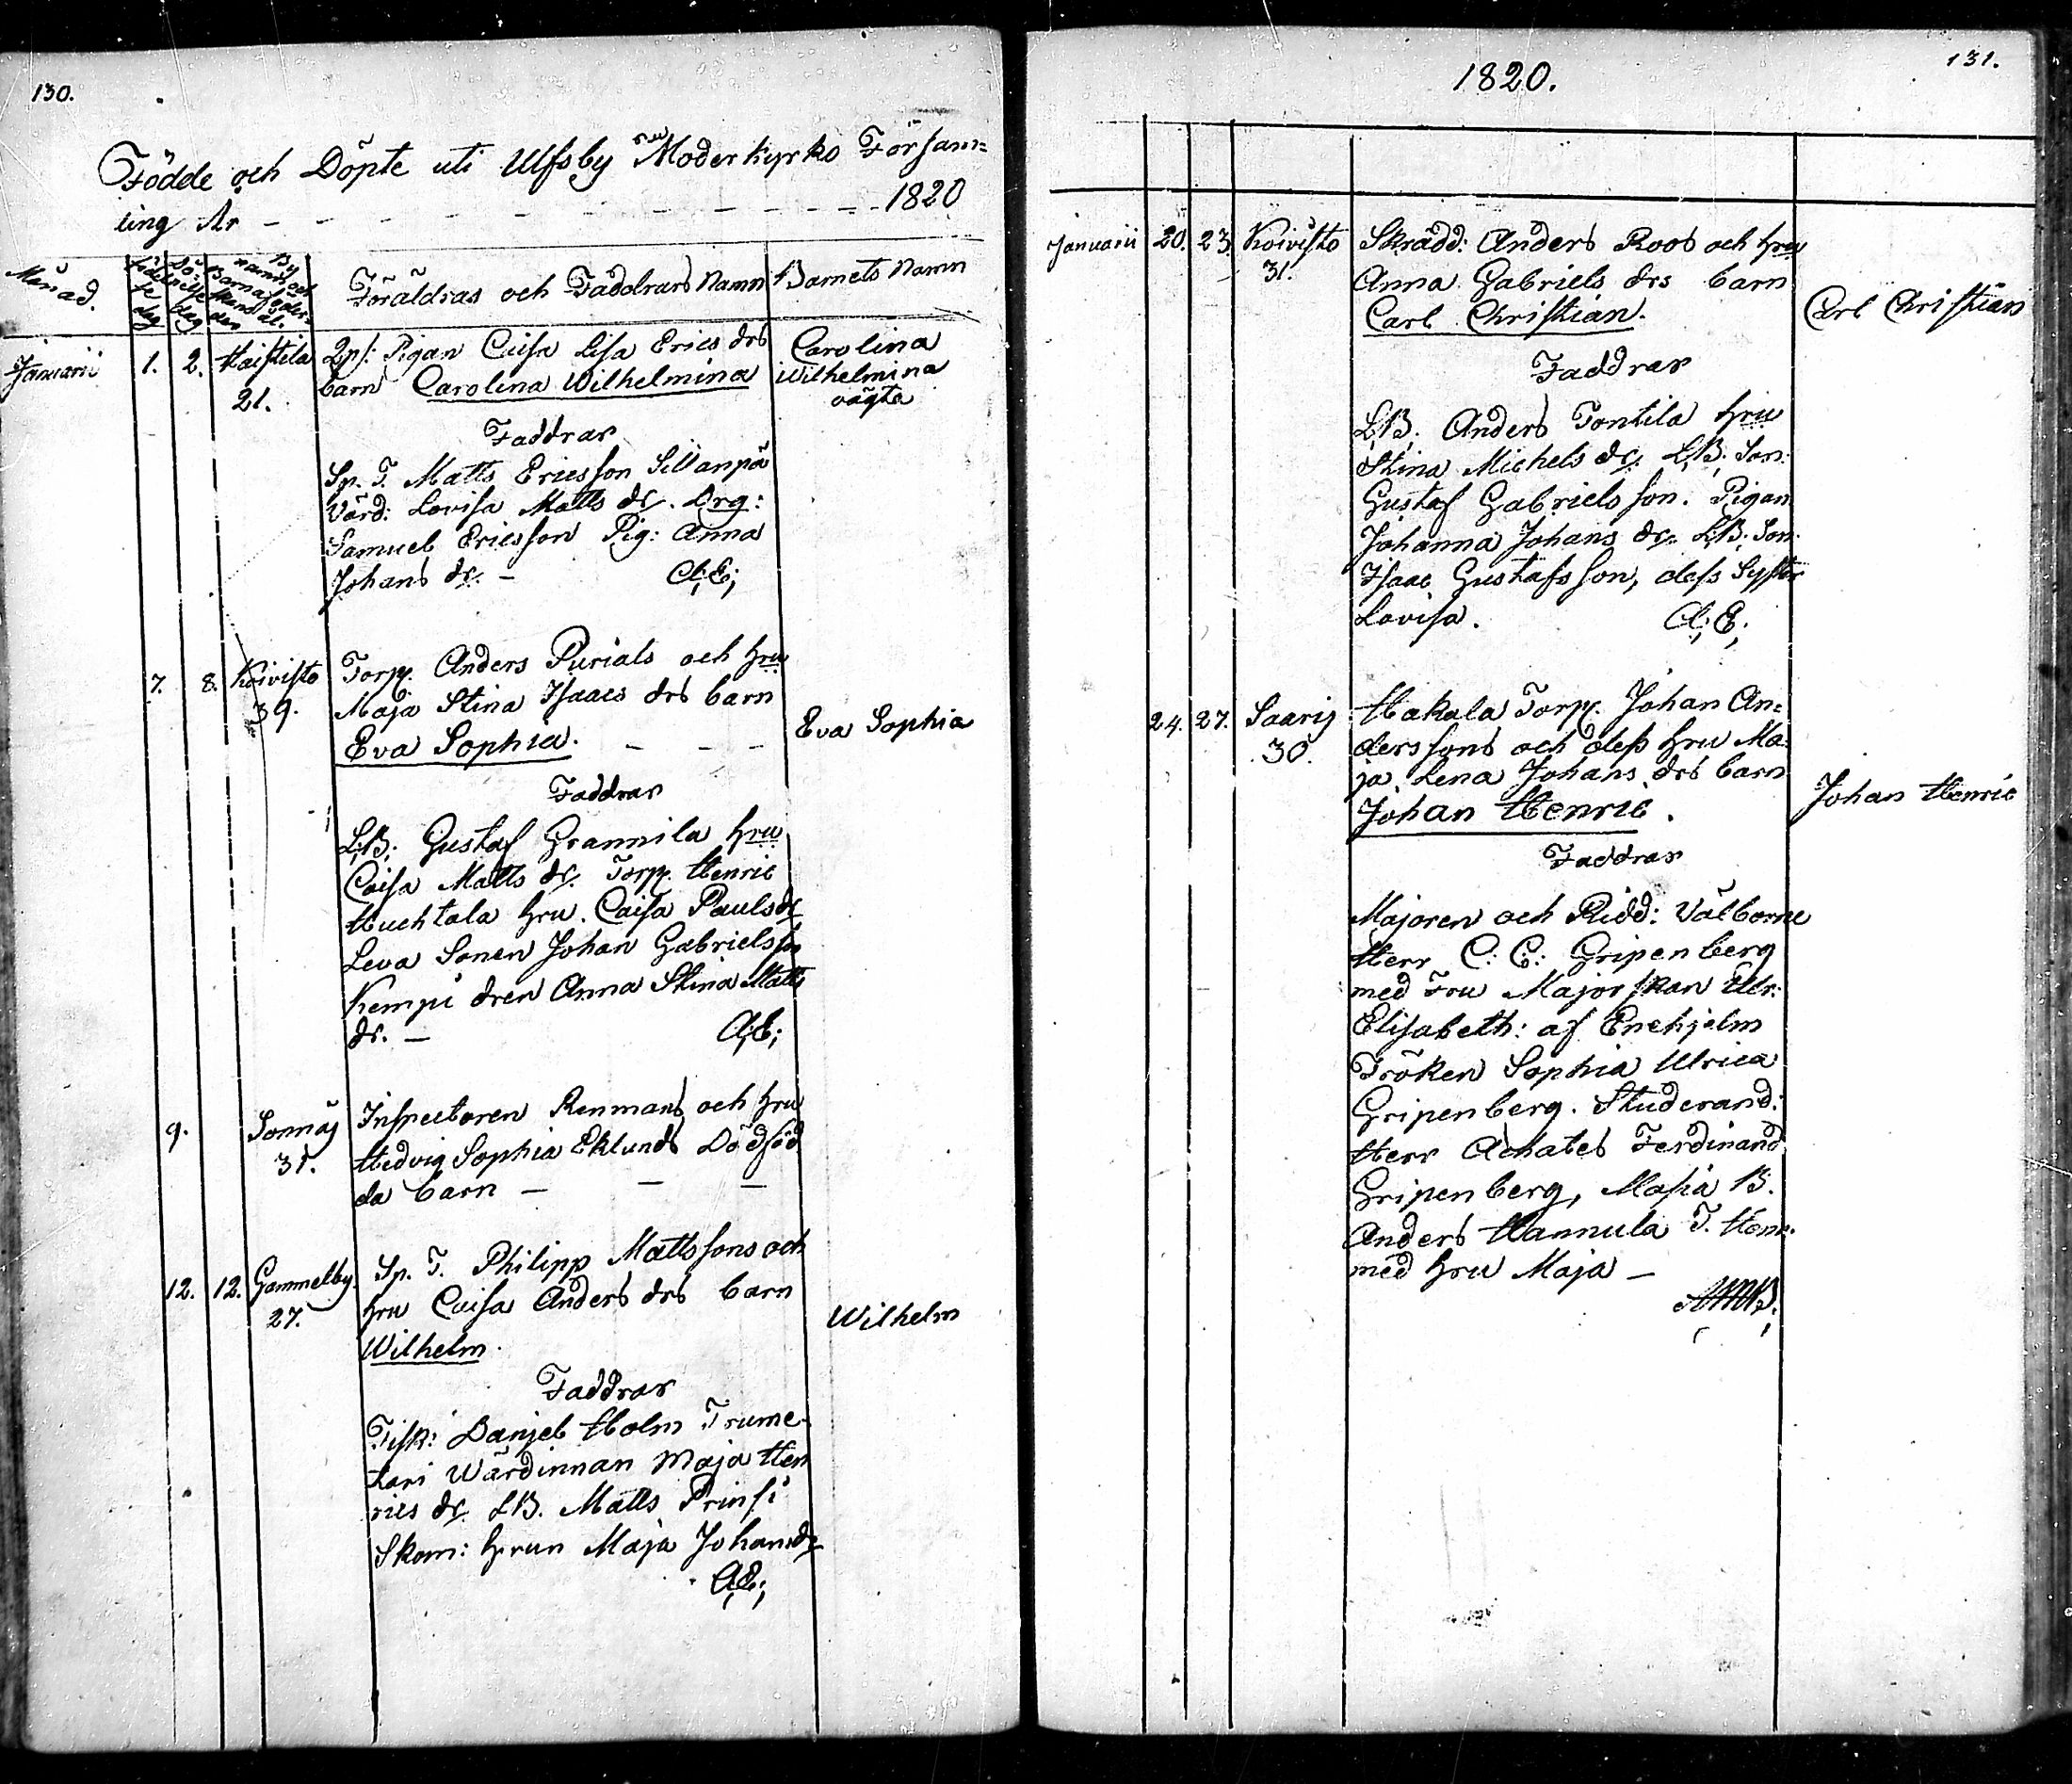 130.
Födde och Döpte uti Ulfsby Moderkyrko Försam=
ling År - - - - - - - - - - 1820
Månad.
Födelse dag
Döpelse dag
By namn, och Barnaföder-skans ål-der.
Föräldras och Faddrars Namn
Barnets Namn
Januarii 1. 2. Haistila
21.
Lps: Pigan Caisa Lisa Erics drs
barn Carolina Wilhelmina
Carolina
Wilhelmina
oägta
Faddrar
Sp. T. Matts Ericsson Sillanpä
Värd: Lovisa Matts dr. Drg:
Samuel Ericsson Pig: Anna
Johans dr. - A;E;
7. 8. Koivisto
39.
Torp. Anders Purials och hru
Maja Stina Isaacs drs barn
Eva Sophia. - - -
Eva Sophia
Faddrar
L;B; Gustaf Grannila hru
Caisa Matts dr. Torp. Henric
Huchtala hru. Caisa Pauls dr
Leva Sonen Johan Gabrielsson
Kempi dren Anna Stina Matts
dr. - A;E;
9. Sonnäs
31.
Inspectoren Renmans och hru
Hedvig Sophia Eklunds Dödföd
da barn - - -
12. 12. Gammelby.
27.
Sp. T. Philipp Mattssons och
hru Caisa Anders drs barn
Wilhelm.
Wilhelm
Faddrar
Fisk: Danjel Holm Trume-
tari Wärdinnan Maja Hen
rics dr. LB. Matts Prinsi
Skom: hrun Maja Johans dr
A;E;
131.
1820.
Januarii 20. 23. Koivisto
31.
Skrädd: Anders Roos och hru
Anna Gabriels drs barn
Carl Christian.
Carl Christian
Faddrar
L;B; Anders Tontila hru
Stina Michels dr. L;B; Son:
Gustaf Gabriels son. Pigan
Johanna Johans dr. L;B; Son:
Isaac Gustafs son, dess Syster
Lovisa. A;E;
24. 27. Saarij
30.
Hakala Torp. Johan An=
derssons och dess hru Ma=
ja Lena Johans drs barn
Johan Henric.
Johan Henric
Faddrar
Majoren och Ridd: Välborne
Herr C: C: Gripenberg
med Fru Majorskan Ulr:
Elisabeth: af Enehjelm
Fröken Sophia Ulrica
Gripenberg. Studerand:
Herr Achates Ferdinand
Gripenberg, Massia B.
Anders Hannula T. Henr.
med hru Maja -